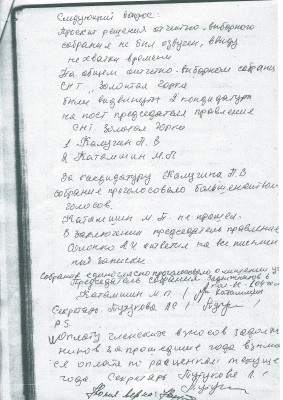 Следующий вопрос:
Проект решения отчетно-выборного
собрания не был озвучен, ввиду
нехватки времени
На общем отчетно-выборном собрании
СНТ "Золотая Горка"
были выдвинуты 2 кандидатуры
на пост председателя правления
СНТ. Золотая Горка
1. Калугин П. В
2 Каташин М. П
За кандидатуру Калугина П. В
собрание проголосовало большинством
голосов.
М. П. - не прошел.
В заключении председатель правления
ответил на все письмен
ные записки
Собрание единогласно проголосовало
Председатель собрания
М. П.
Секретарь Пугукова Л С
P S.
Оплату членских взносов задолж
ников за прошедшие года взима
ся оплата по расценкам текуще
года. Секретарь Пугукова Л. С